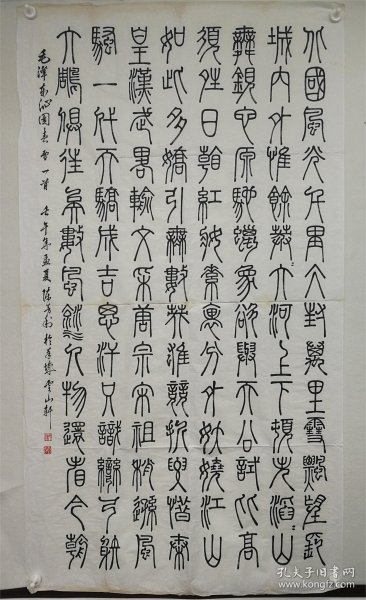 北國風光千里冰封萬里雪飄望長
城内外惟餘莽大河上下頓失滔山
舞銀蛇原馳蠟象欲與天公試比高
須晴日看紅妝素裹分外妖嬈江山
如此多嬌引無數英雄競折腰惜秦
皇漢武略輸文采唐宗宋祖稍遜風
騷一代天驕成吉思汗只識彎弓射
大鵰俱往矣數風流人物還看今朝
毛澤東沁園春雪一首 壬午年孟夏 於雲山軒
孔夫子旧书网
www.kongfz.com